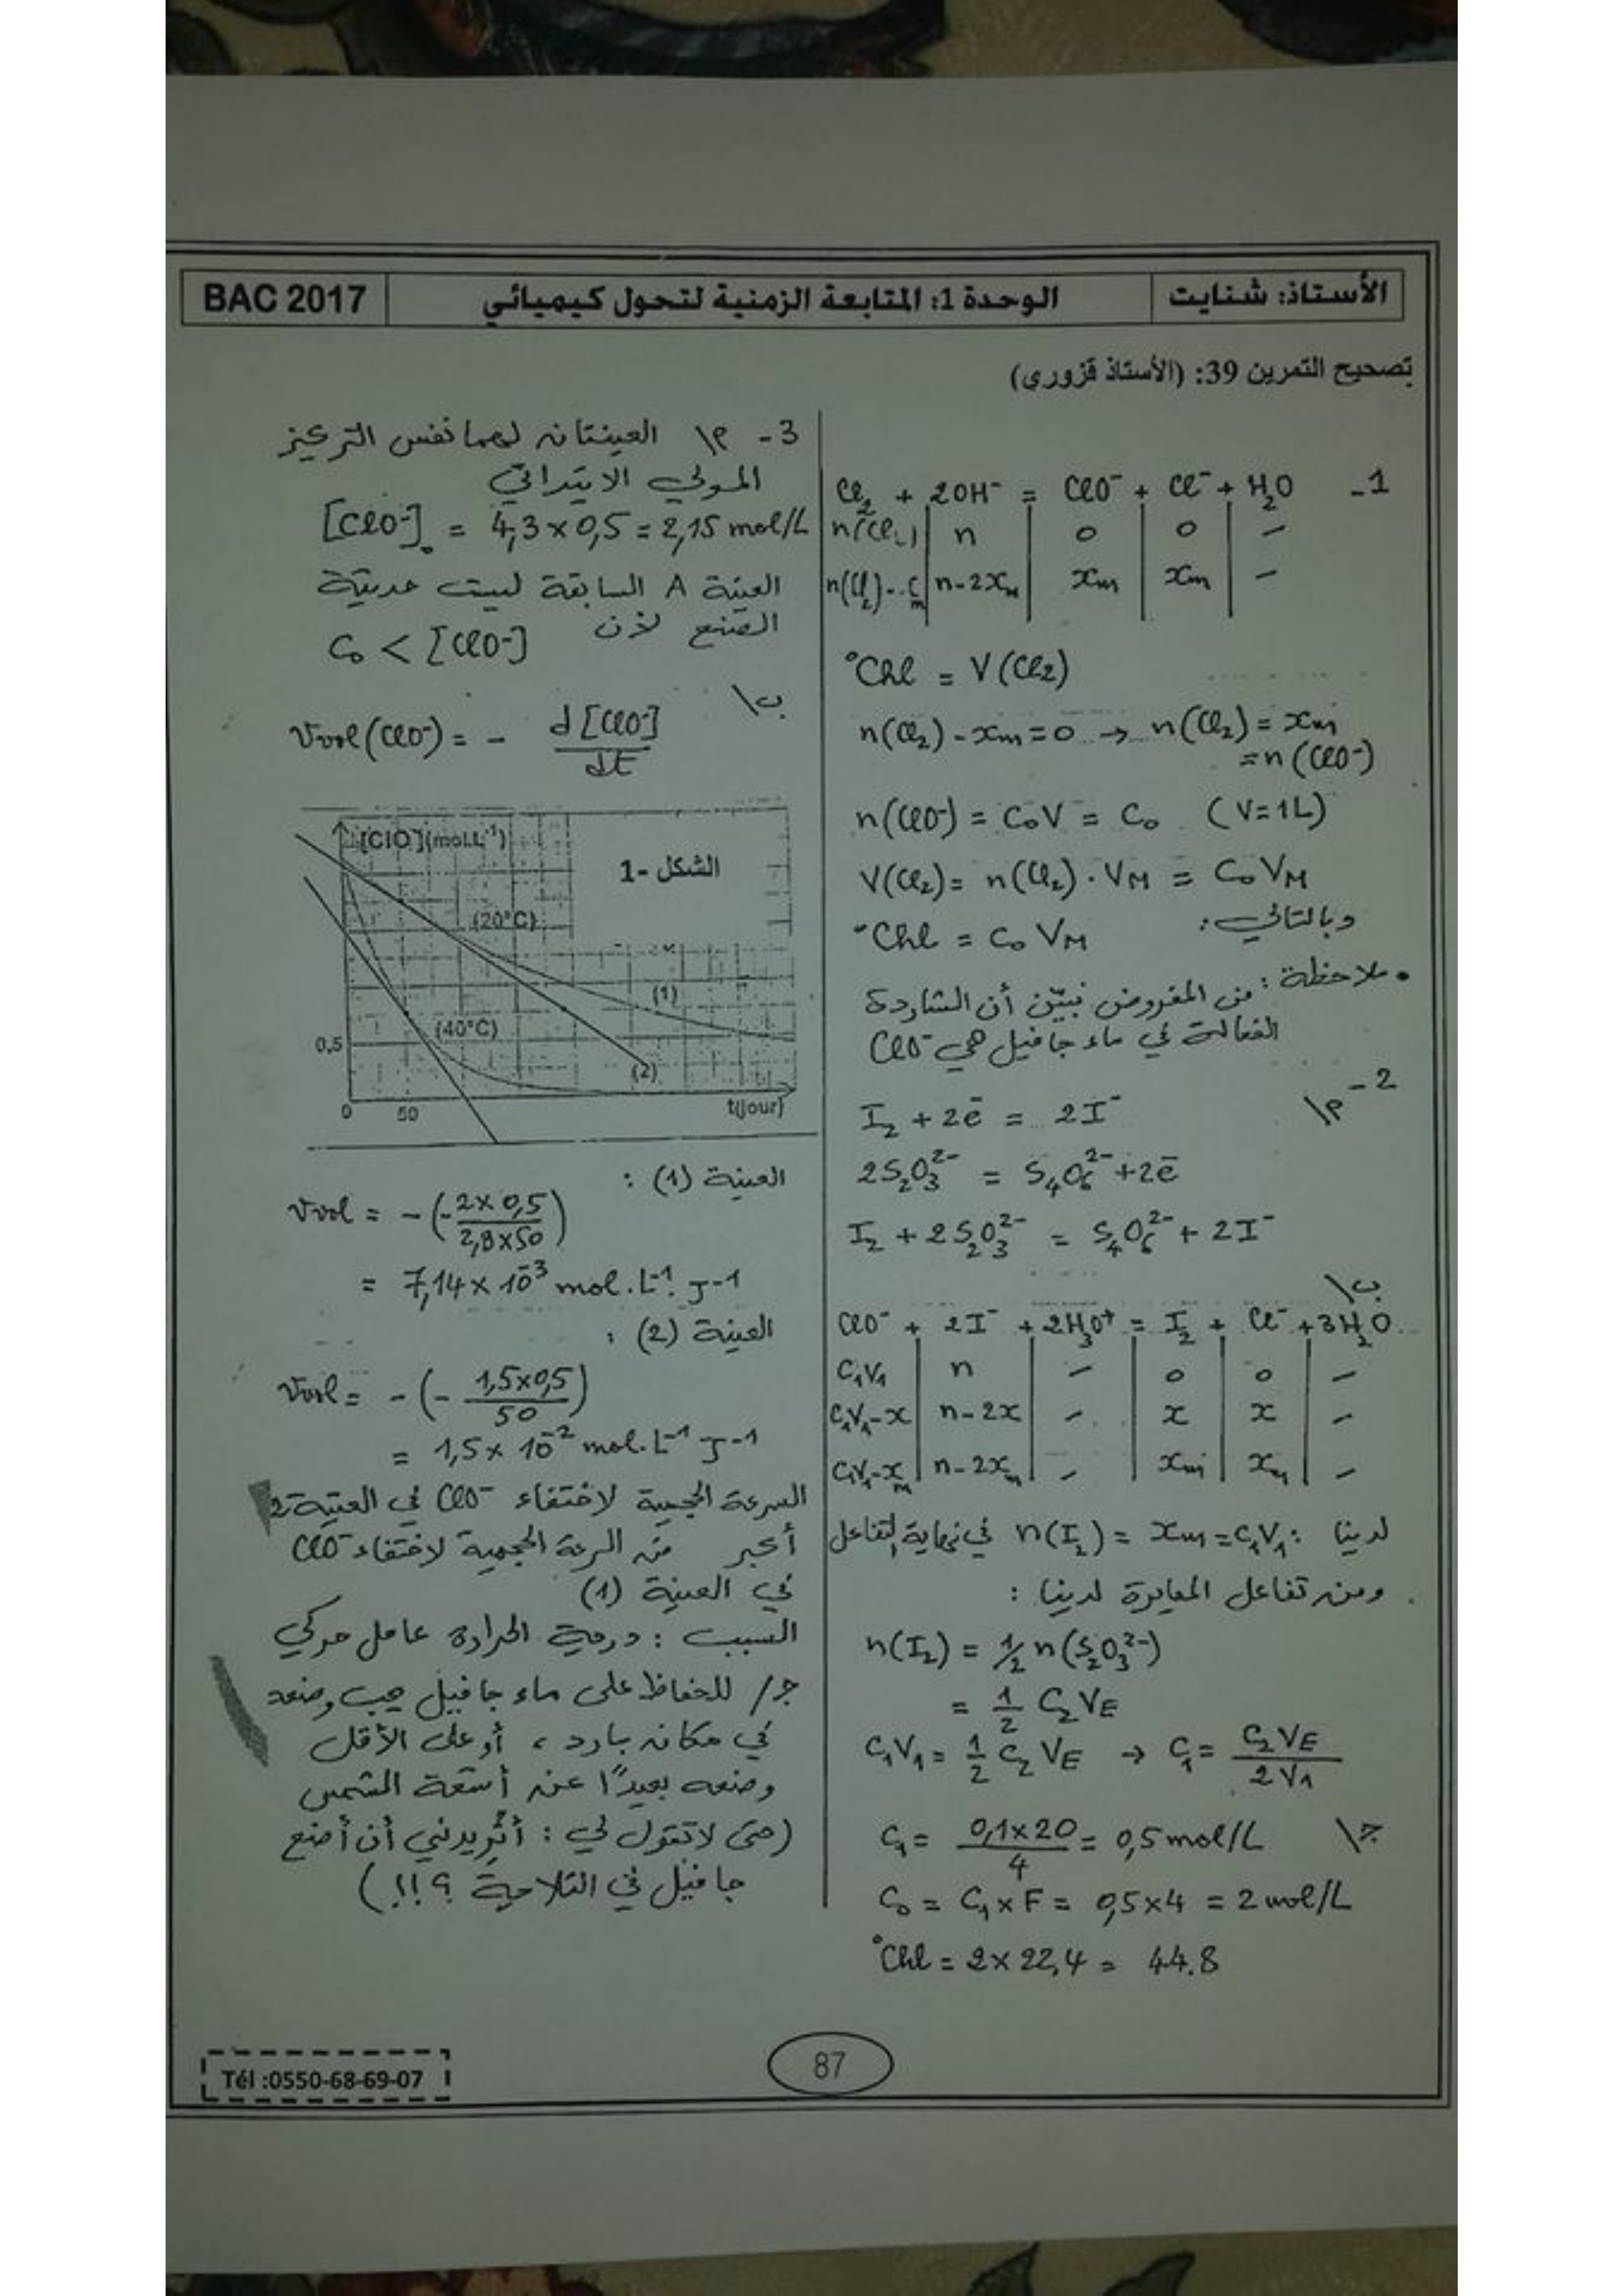 الأستاذ: شنايت
الوحدة 1: المتابعة الزمنية لتحول كيميائي
BAC 2017
تصحيح التمرين 39: (الأستاذ قزوري)
1- Cl₂ + 2OH⁻ = ClO⁻ + Cl⁻ + H₂O
n(Cl₂) | n | 0 | 0 | –
n(Cl₂)-xm | n-2xm | xm | xm | –
°Chl = V(Cl₂)
n(Cl₂) - xm = 0 → n(Cl₂) = xm
= n(ClO⁻)
n(ClO⁻) = C₀V = C₀ (V=1L)
V(Cl₂) = n(Cl₂) . VM = C₀VM
وبالتالي:
°Chl = C₀ VM
• ملاحظة: من المفروض نبيّن أن الشاردة
الفعالة في ماء جافيل هي ClO⁻
2- أ\
I₂ + 2e⁻ = 2I⁻
2S₂O₃²⁻ = S₄O₆²⁻ + 2e⁻
I₂ + 2S₂O₃²⁻ = S₄O₆²⁻ + 2I⁻
ب\
ClO⁻ + 2I⁻ + 2H₃O⁺ = I₂ + Cl⁻ + 3H₂O
C₁V₁ | n | – | 0 | 0 | –
C₁V₁-x | n-2x | – | x | x | –
C₁V₁-xm | n-2xm | – | xm | xm | –
لدينا: n(I₂) = xm = C₁V₁ في نهاية التفاعل
ومن تفاعل المعايرة لدينا:
n(I₂) = 1/2 n(S₂O₃²⁻)
= 1/2 C₂VE
C₁V₁ = 1/2 C₂VE → C₁ = C₂VE / 2V₁
ج\ C₁ = 0,1×20 / 4 = 0,5 mol/L
C₀ = C₁×F = 0,5×4 = 2 mol/L
°Chl = 2×22,4 = 44.8
3- أ\ العينتان لهما نفس التركيز
المولي الابتدائي
[ClO⁻]₀ = 4,3×0,5 = 2,15 mol/L
العينة A السابقة ليست حديثة
الصنع لأن
C₀ < [ClO⁻]
ب\
Vvol(ClO⁻) = - d[ClO⁻] / dt
[ClO⁻](mol.L⁻¹)
الشكل -1
(20°C)
(1)
(40°C)
0,5
(2)
0
50
t(jour)
العينة (1):
Vvol = -(-2×0,5 / 2,8×50)
= 7,14×10⁻³ mol.L⁻¹.J⁻¹
العينة (2):
Vvol = -(- 1,5×0,5 / 50)
= 1,5×10⁻² mol.L⁻¹ J⁻¹
السرعة الحجمية لاختفاء ClO⁻ في العينة 2
أكبر من السرعة الحجمية لاختفاء ClO⁻
في العينة (1)
السبب: درجة الحرارة عامل حركي
ج/ للحفاظ على ماء جافيل يجب وضعه
في مكان بارد، أو على الأقل
وضعه بعيدًا عن أشعة الشمس
(حتى لا تقول لي: أتُريدني أن أضع
جافيل في الثلاجة ؟!!)
87
Tél :0550-68-69-07